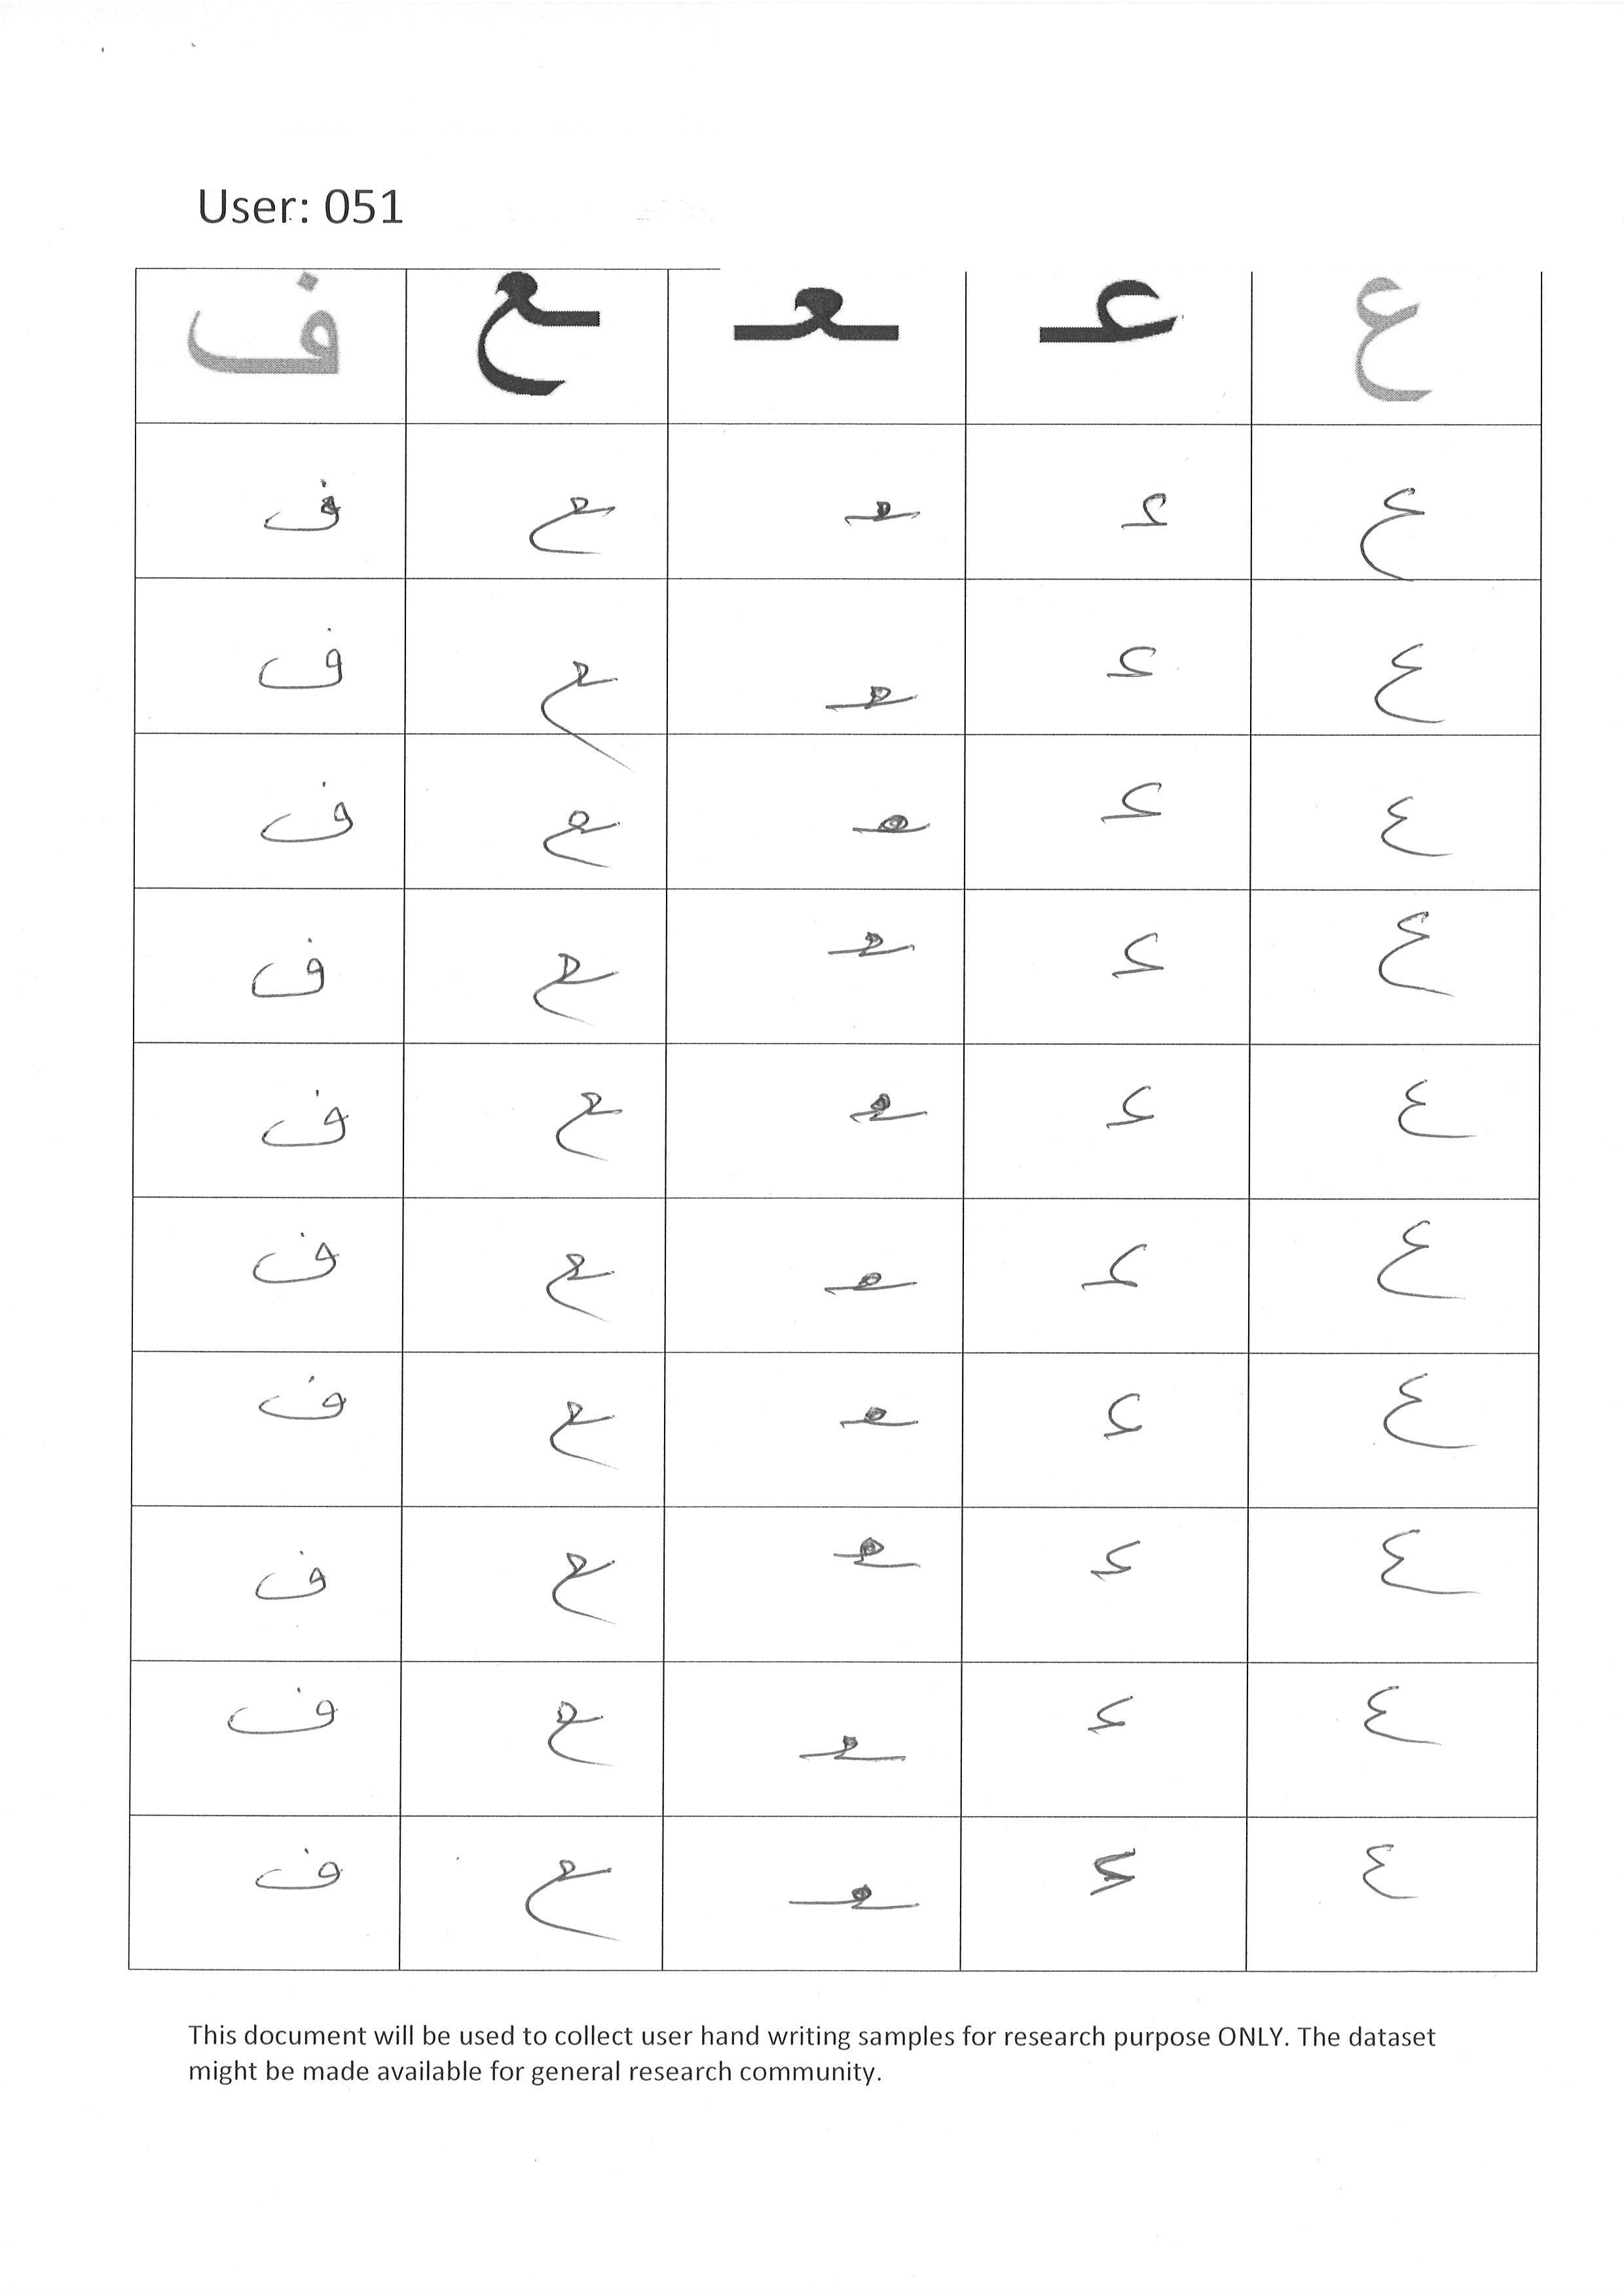 User: 051
ع عـ ـعـ ـع ف
ع عـ ـعـ ـع ف
ع عـ ـعـ ـع ف
ع عـ ـعـ ـع ف
ع عـ ـعـ ـع ف
ع عـ ـعـ ـع ف
ع عـ ـعـ ـع ف
ع عـ ـعـ ـع ف
ع عـ ـعـ ـع ف
ع عـ ـعـ ـع ف
ع عـ ـعـ ـع ف
This document will be used to collect user hand writing samples for research purpose ONLY. The dataset
might be made available for general research community.